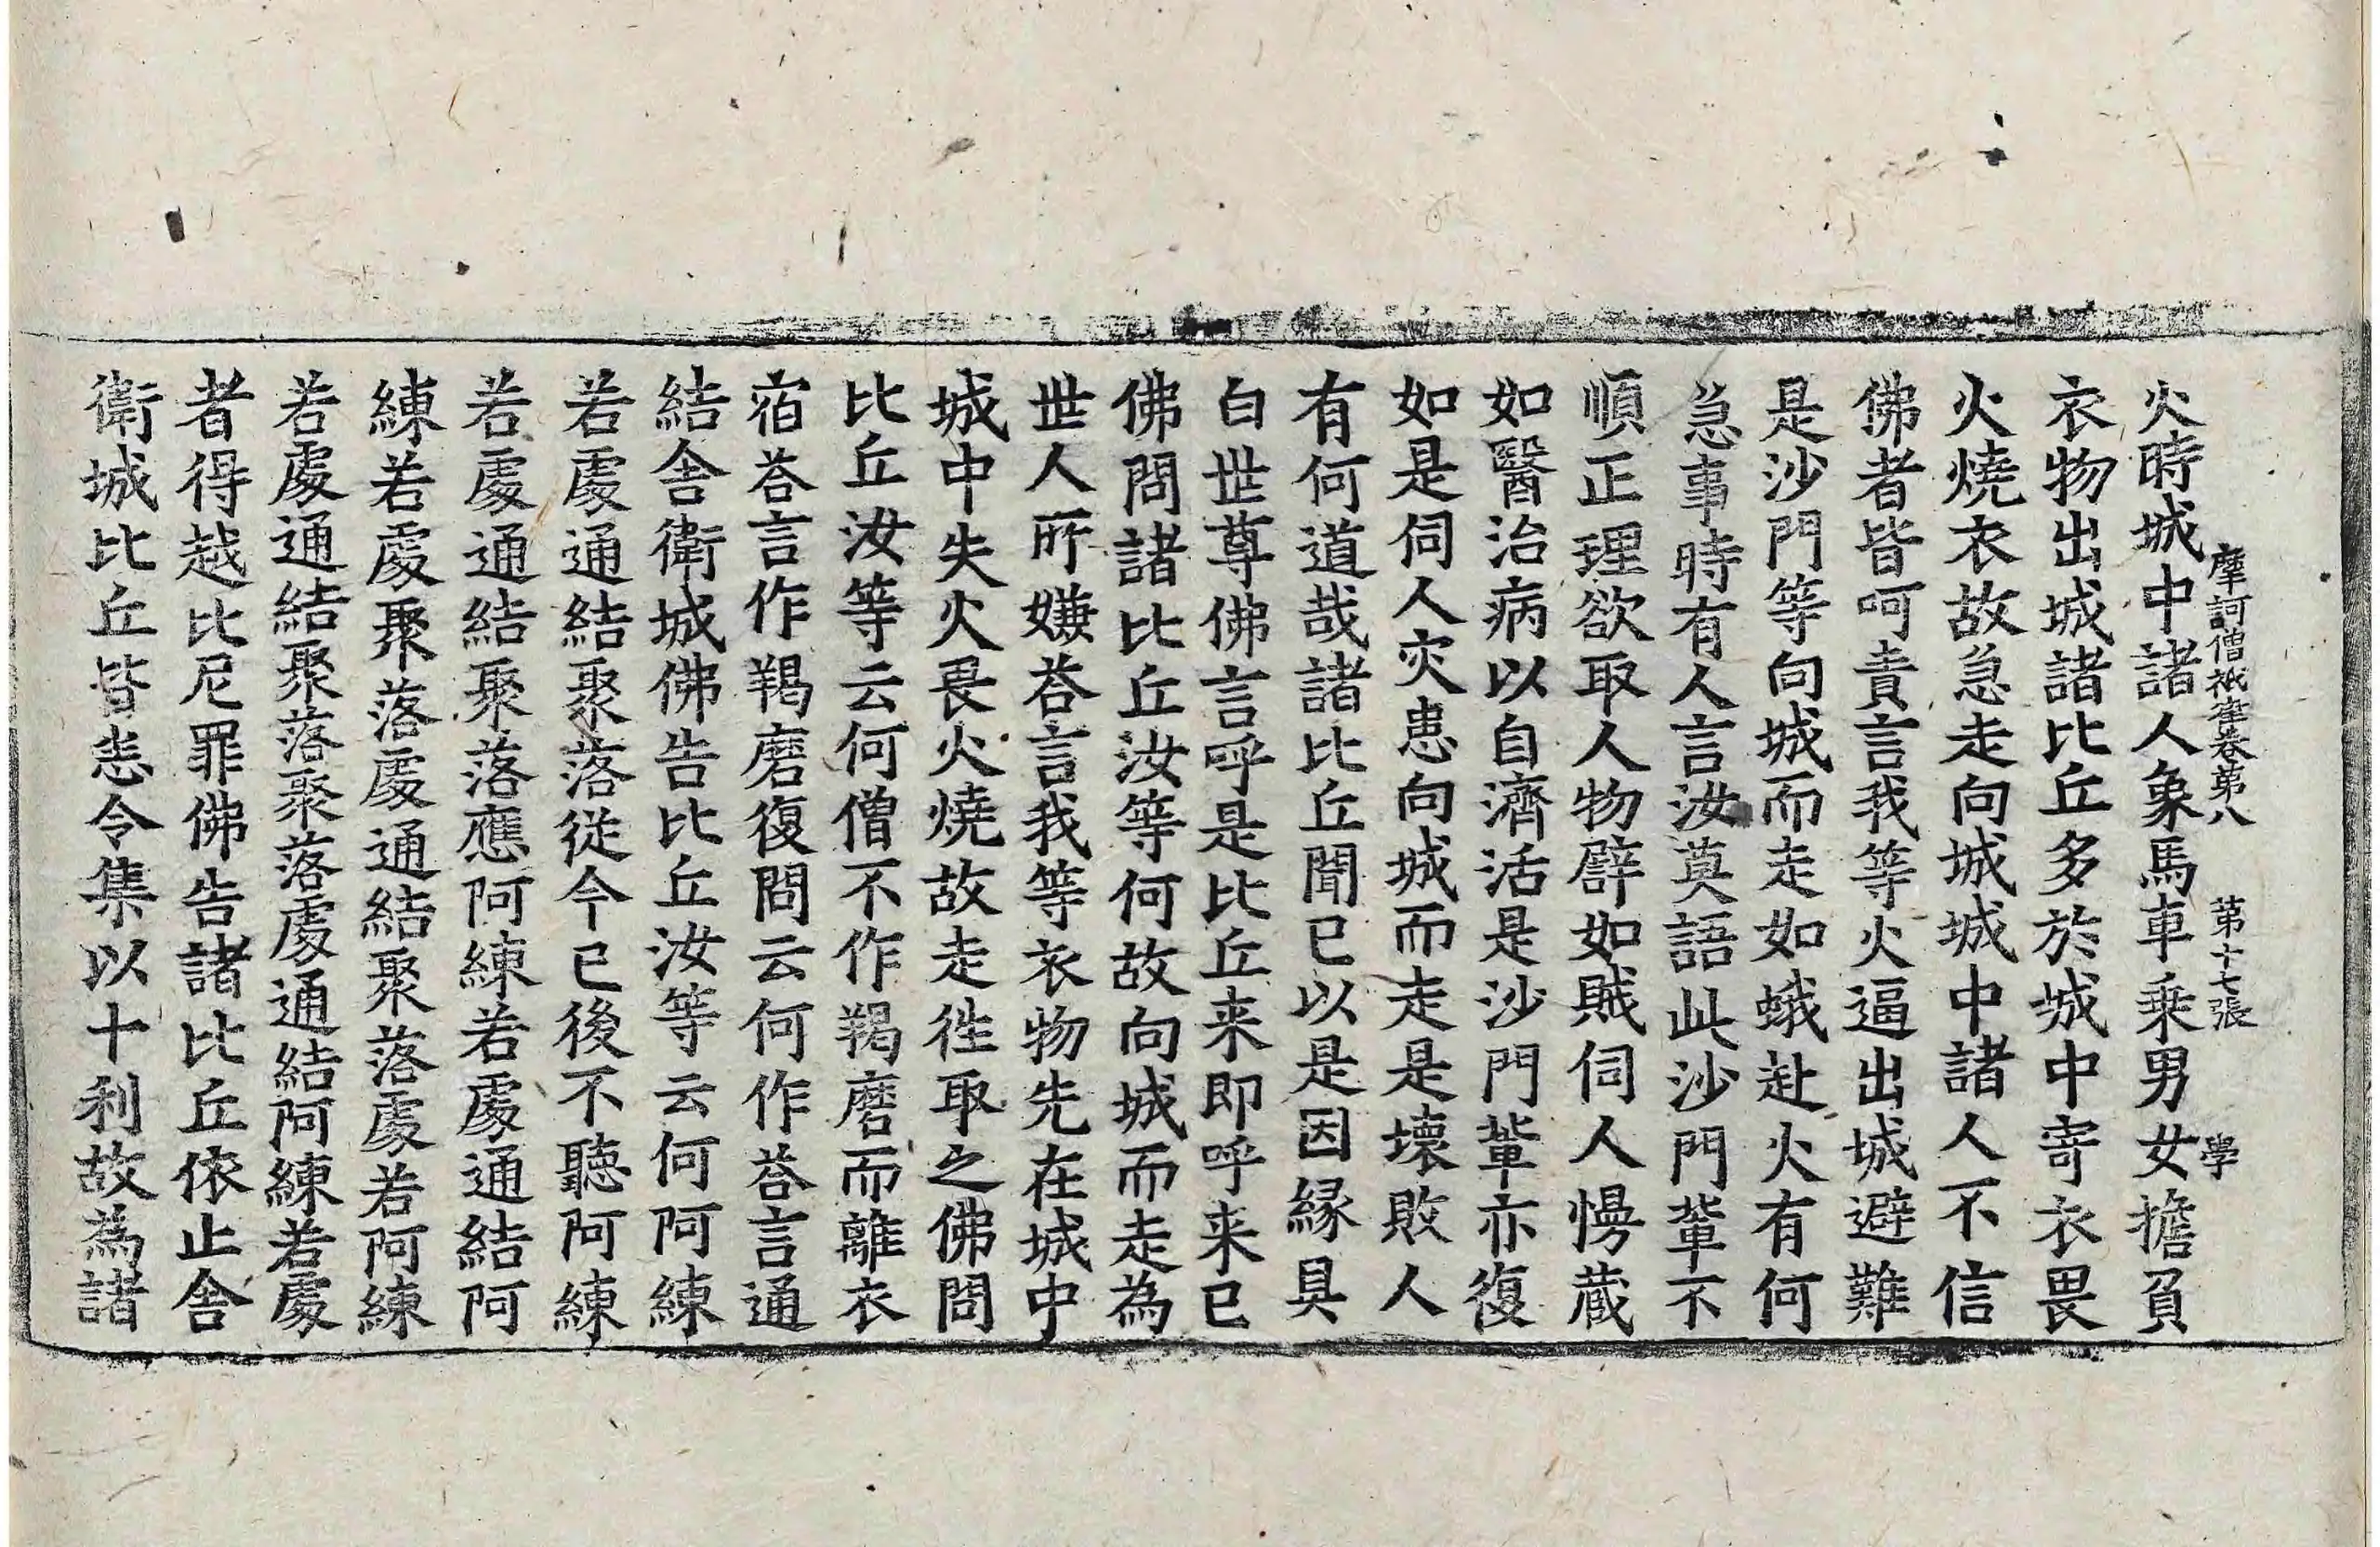 摩訶僧祇律卷第八 第十七張 學
火時城中諸人象馬車乘男女擔負
衣物出城諸比丘多於城中寄衣畏
火燒衣故急走向城城中諸人不信
佛者皆呵責言我等火逼出城避難
是沙門等向城而走如蛾赴火有何
急事時有人言汝莫語此沙門輩不
順正理欲取人物譬如賊伺人慢藏
如醫治病以自濟活是沙門輩亦復
如是伺人灾患向城而走是壞敗人
有何道哉諸比丘聞已以是因縁具
白世尊佛言呼是比丘来即呼来已
佛問諸比丘汝等何故向城而走為
世人所嫌荅言我等衣物先在城中
城中失火畏火燒故走徃取之佛問
比丘汝等云何僧不作羯磨而離衣
宿荅言作羯磨復問云何作荅言通
結舍衛城佛告比丘汝等云何阿練
若處通結聚落従今已後不聽阿練
若處通結聚落應阿練若處通結阿
練若處聚落處通結聚落處若阿練
若處通結聚落聚落處通結阿練若處
者得越比尼罪佛告諸比丘依止舍
衛城比丘皆悉令集以十利故為諸